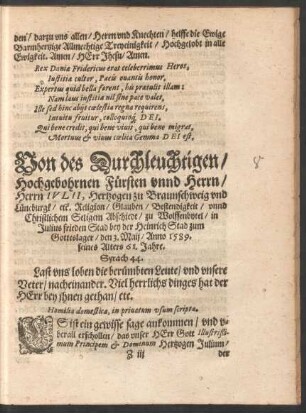 den/ darzu uns allen/ Herrn vnd Knechten/ helffe die Ewige
Barmhertzige Allmechtige Treyeinigkeit/ Hochgelobt in alle
Ewigkeit. Amen/ HErr Jhesu/ Amen.
Rex Dania Fridericus erat celeberrimus Heros,
Iustitiæ cultor, Pacis ouantis honor,
Expertus quid bella furent, bis præstitit illam:
Nam laus iustitia nil sine pace valet,
Ille sed hinc abijt cœlestia regna requirens,
Intuitu fruitur, colloquioq́; DEI,
Qui bene credit, qui bene vixit, qui bene migrat,
Mortuus & viuus cœlica Gemma DEI est,
Von des Durchleuchtigen/
Hochgebohrnen Fürsten vnnd Herrn/
Herrn IVLII, Hertzogen zu Braunschweig vnd
Lüneburg/ etc. Religion/ Glauben/ Bestendigkeit/ vnnd
Christlichem Seligem Abschiede/ zu Wolffenbütel/ in
Julius frieden Stad bey der Heinrich Stad zum
Gotteslager/ den 3. Maij/ Anno 1589.
seines Alters 61. Jahre.
Syrach 44.
Last vns loben die berümbten Leute/ vnd vnsere
Veter/ nacheinander. Viel herrlichs dinges hat der
HErr bey jhnen gethan/ etc.
Homilia domestica, in priuatum vsum scripta.
ES ist ein gewisse sage ankommen/ vnd v-
berall erschollen/ das vnser HErr Gott Illustrissi-
mum Principem & Dominum Hertzogen Julium/
Z iij
der